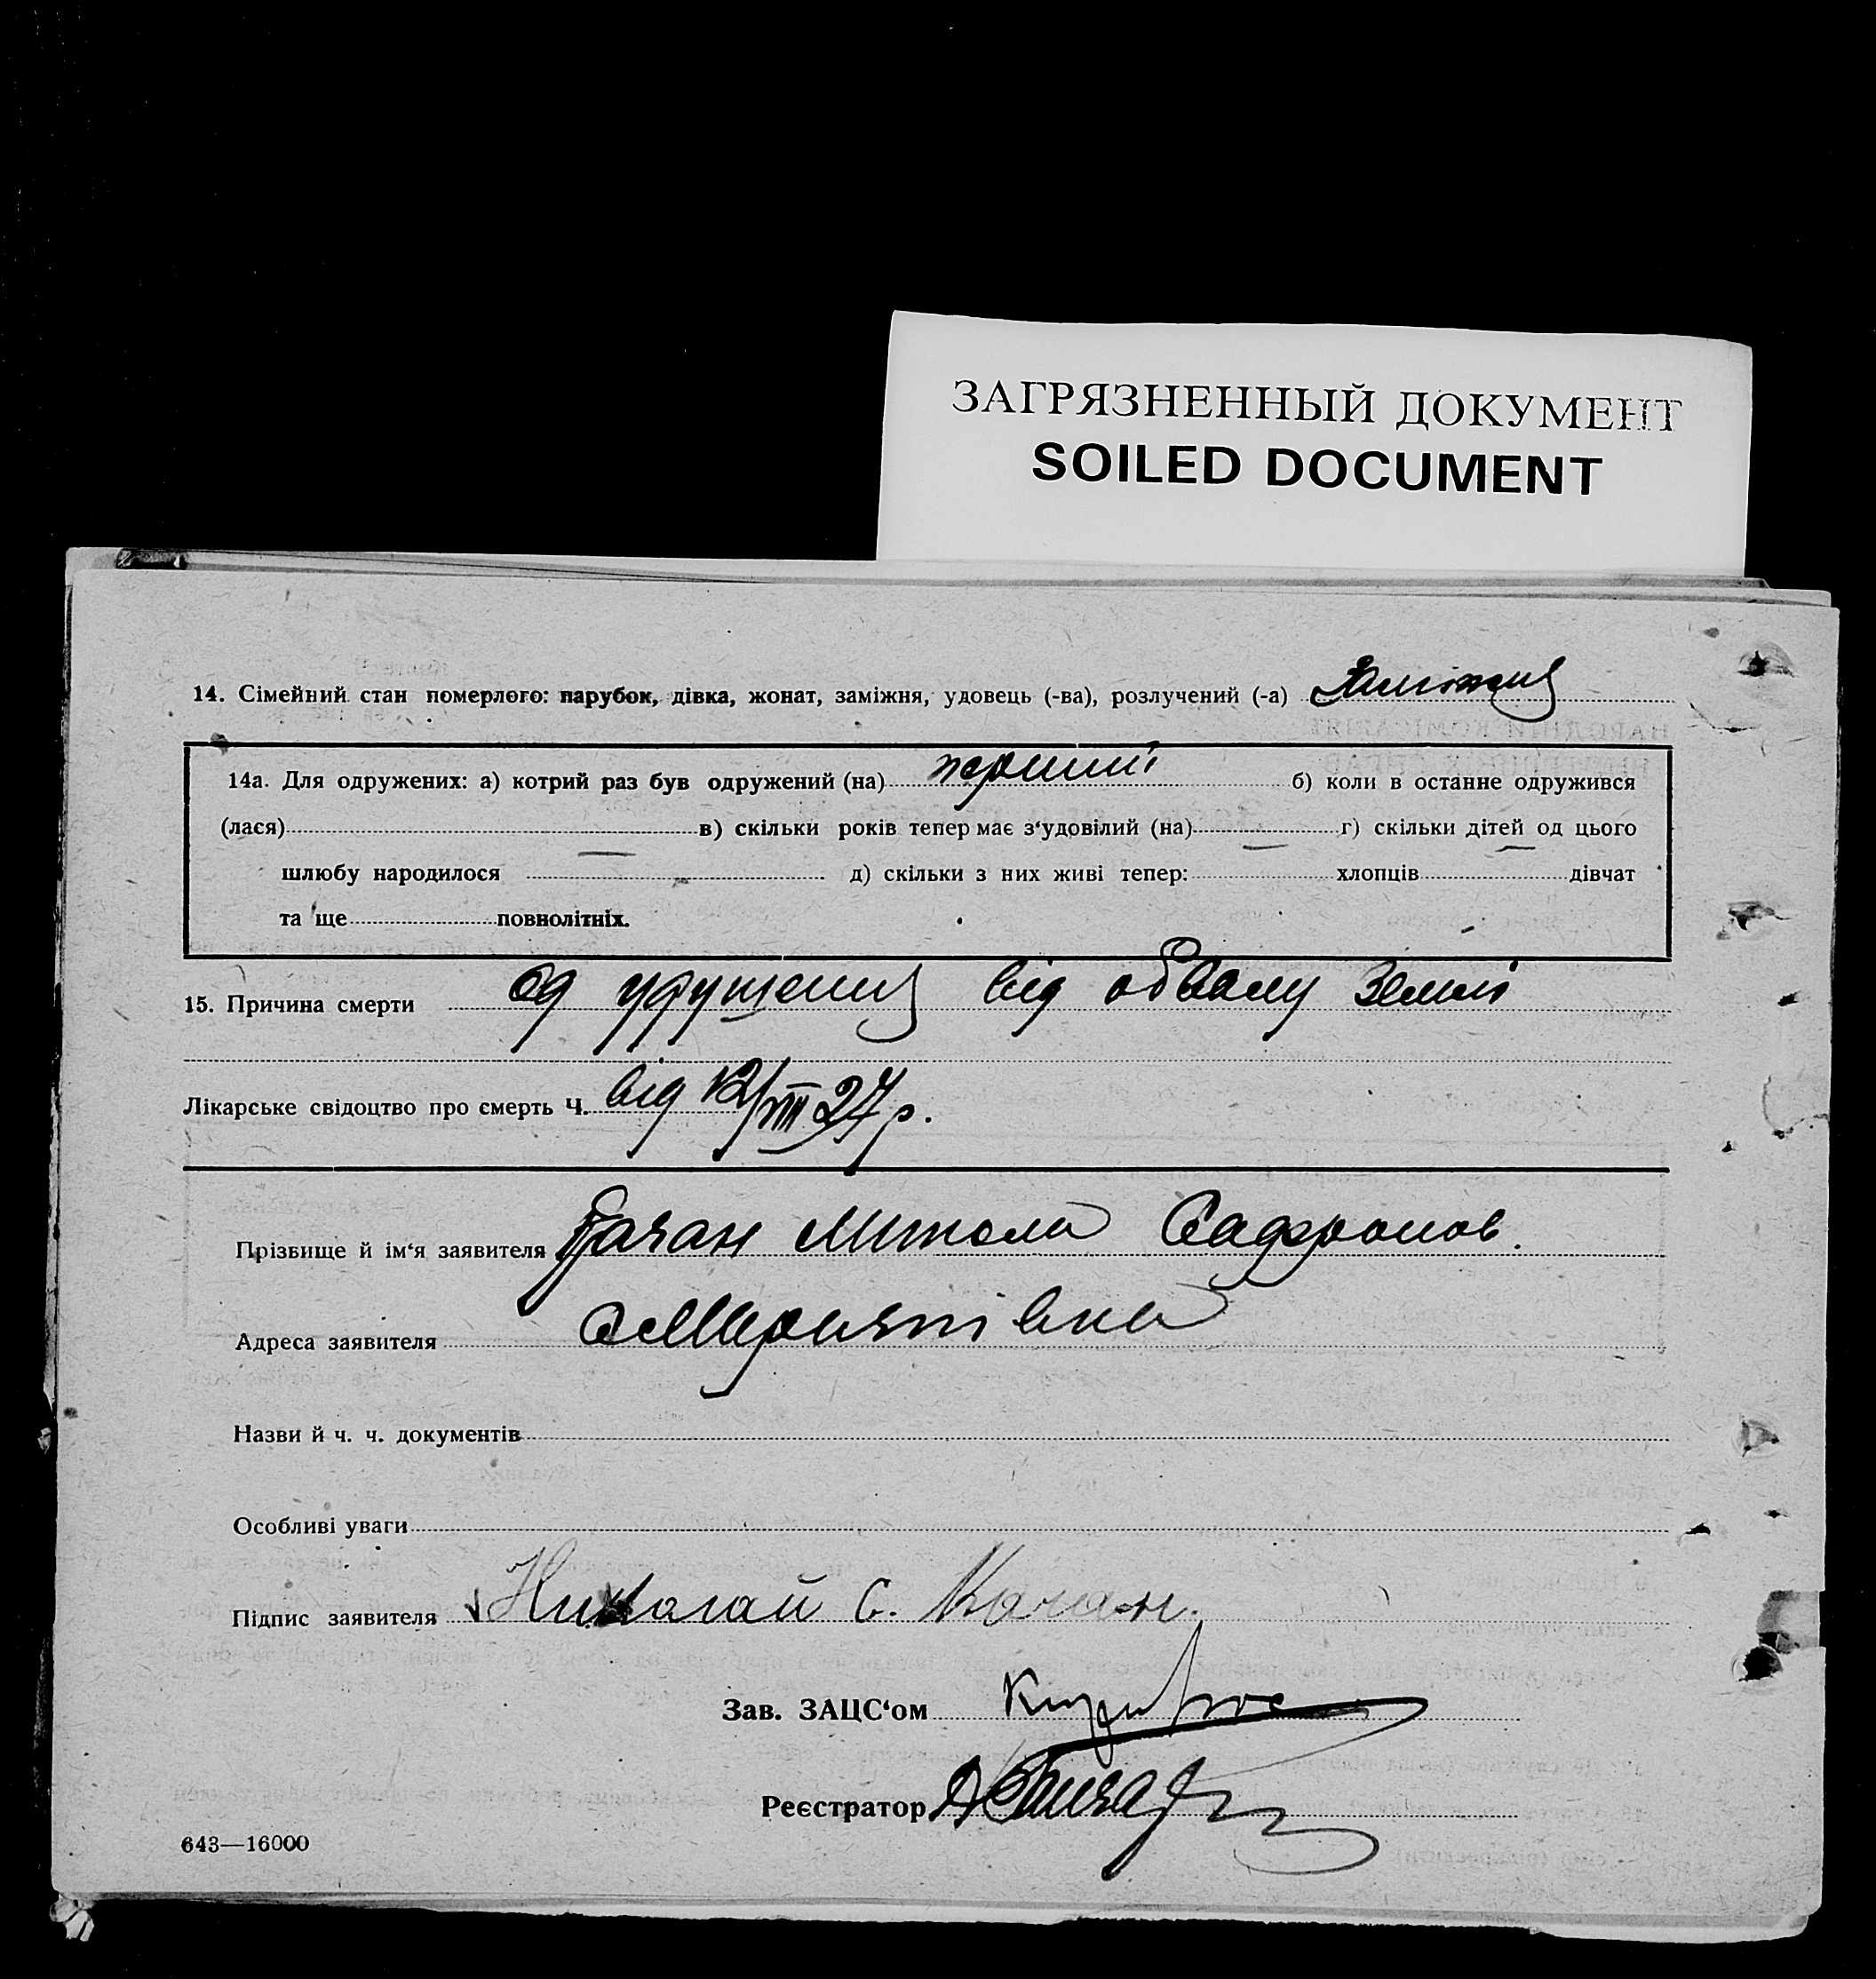 ЗАГРЯЗНЕННЫЙ ДОКУМЕНТ
SOILED DOCUMENT
14. Сімейний стан померлого: парубок, дівка, жонат, заміжня, удовець (-ва), розлучений (-а) Заміжня
14а. Для одружених: а) котрий раз був одружений (на) перший б) коли в останне одружився
(лася) в) скільки років тепер має з‘удовілий (на) г) скільки дітей од цього
шлюбу народилося д) скільки з них живі тепер: хлопців дівчат
та ще повнолітніх.
15. Причина смерти од удушения від обвалу землі
Лікарське свідоцтво про смерть Ч. від 12/VIII 27 р.
Прізвище й ім‘я заявителя Качан Микола Сафронов.
Адреса заявителя
Назви й ч. ч. документів
Особливі уваги
Підпис заявителя Николай С. Качан.
Зав. ЗАЦС‘ом
Реєстратор
643—16000